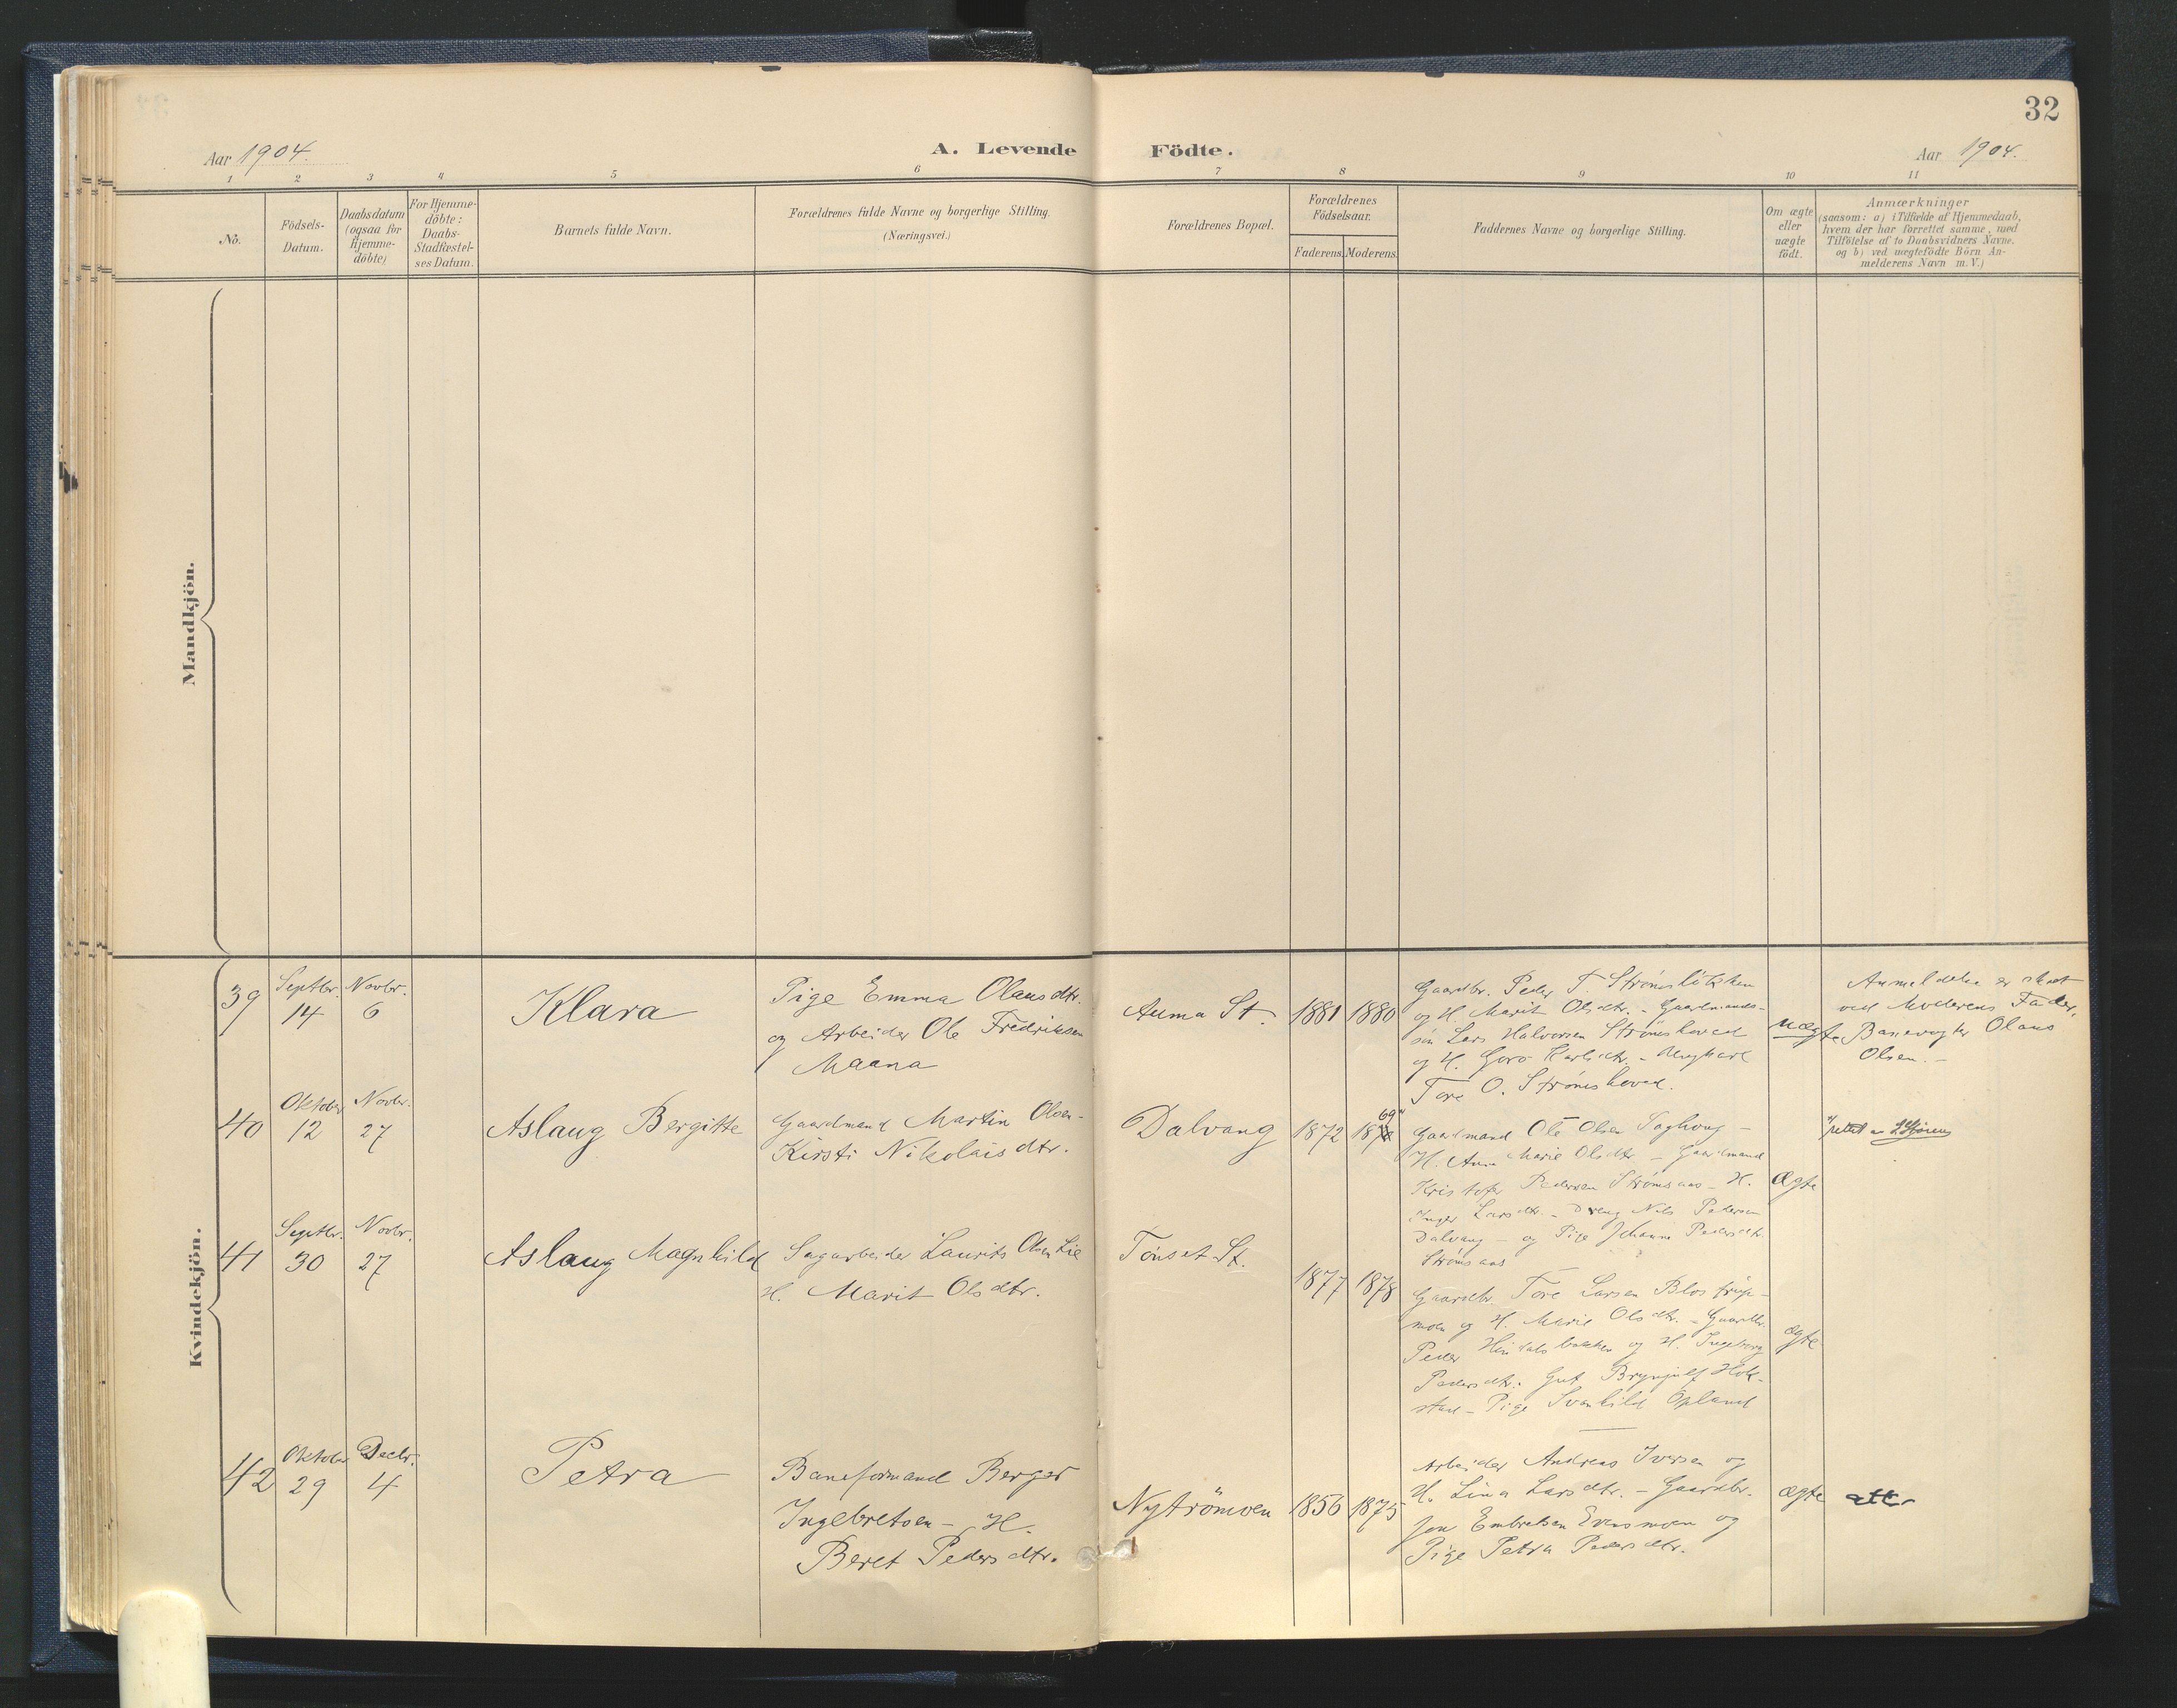 32
Aar 1904.
A. Levende Födte.
Aar 1904.
1 2 3 4 5 6 7 8 9 10 11
No.
Födsels-
Datum.
Daabsdatum
(ogsaa for
Hjemme-
döbte)
For Hjemme-
döbte:
Daabs-
Stadfæstel-
ses Datum.
Barnets fulde Navn.
Forældrenes fulde Navne og borgerlige Stilling.
(Næringsvei.)
Forældrenes Bopæl.
Forældrenes
Födselsaar.
Faderens. Moderens.
Faddernes Navne og borgerlige Stilling.
Om ægte
eller
uægte
födt.
Anmærkninger
(saasom: a) i Tilfælde af Hjemmedaab,
hvem der har forrettet samme, med
Tilföielse af to Daabsvidners Navne,
og b) ved uægtefödte Börn An-
melderens Navn m. V.)
Mandkjön.
Kvindekjön.
39
Septbr.
14
Novbr.
6
Klara
Pige Emma Olausdtr.
og Arbeider Ole Fredriksen
Maana
Auma St.
1881
1880
Gaardbr. Peder T. Strömslökken
og H. Marit Olsdtr. - Gaardmands-
sön Lars Halvorsen Strömshoved
og H. Goro - Ungkarl
Tore O. Strömshoved.
uægte
Anmeldelse er skeet
ved Moderens Fader,
Banevogter Olaus
Olsen. -
40
Oktober
12
Novbr.
27
Aslaug Bergitte
Gaardmand Martin Olsen -
Kirsti Nikolaisdtr.
Dalvang
1872
69
187
Gaardmand Ole Olsen -
H. Anne Marie Olsdtr - Gaardmand
Kristofer Pedersen Strömsaas - H.
Inger Larsdtr. - Dreng Nils Pedersen
Dalvang - og Pige Johanna Pedersdtr.
Strömsaas
Ægte
rettet av
41
Septbr.
30
Novbr.
27
Aslaug Magnhild
Sagarbeider Laurits Olsen Lie
H. Marit Olsdtr.
Tönset St.
1877
1878
Gaardbr. Tore Larsen
moen og H. Marie Olsdtr. - Gaardbr.
Peder og H. Ingeborg
Pedersdtr. Gut Brynjulf Hok-
stad - Pige Svanhild Opland
ægte
42
Oktober
29
Decbr.
4
Petra
Baneformand Berger
Ingebretsen - H.
Beret Pedersdtr.
Nyströmoen
1856
1875
Arbeider Andreas Iversen og
H. Lina Larsdtr. - Gaardbr.
Jon Embretsen Evensmoen og
Pige Petra Pedersdtr.
ægte